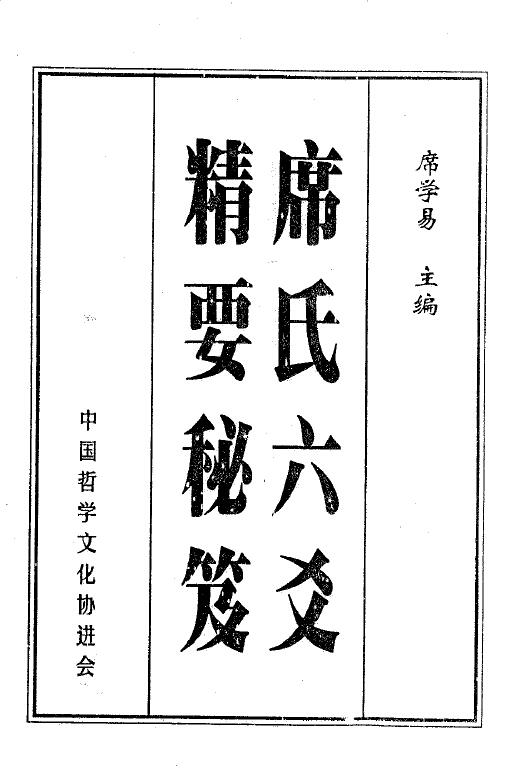 席学易 主编
席氏六爻
精要秘笈
中国哲学文化协进会